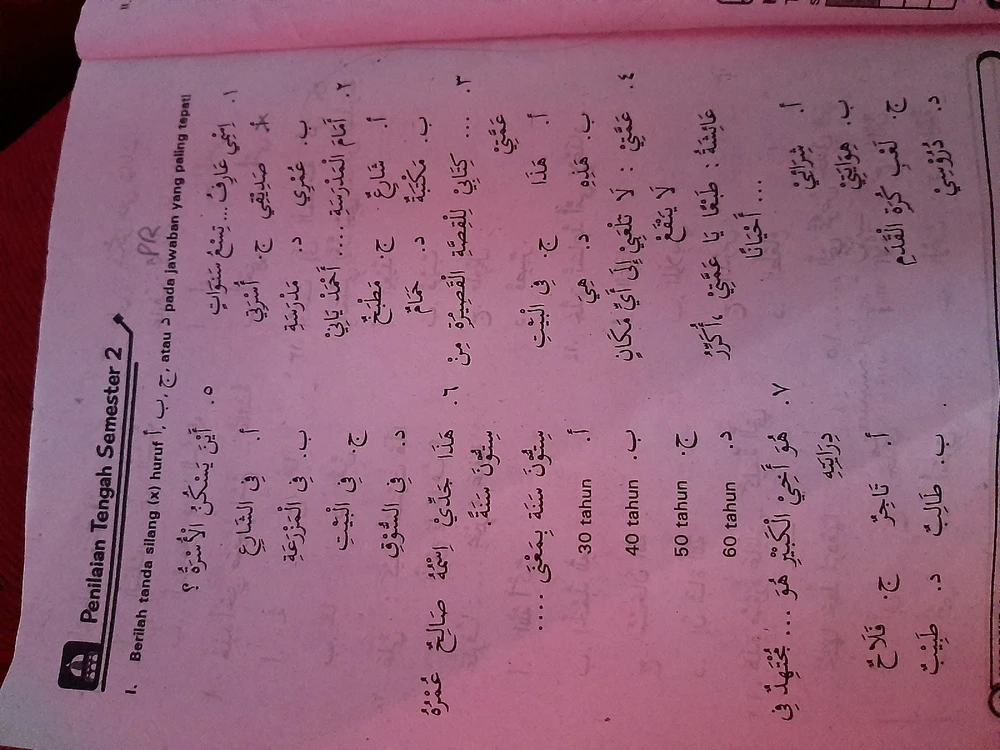 Penilaian Tengah Semester 2
PR
I. Berilah tanda silang (x) huruf أ, ب, ج, atau د pada jawaban yang paling tepat!
١. اِسْمِي عَارِفٌ ... تِسْعُ سَنَوَاتٍ
أ. صَدِيْقِي ج. أُسْرَتِي
ب. عُمْرِي د. مَدْرَسَةِ
٢. أَمَامَ الْمَدْرَسَةِ .... أَحْمَدُ يَاتِيْ
أ. شَارِعٌ ج. مَطْبَخٌ
ب. مَكْتَبَةٌ د. حَمَامٌ
٣. ... كِتَابِيْ لِلْقِصَّةِ الْقَصِيْرَةِ مِنْ
عَمَّتِيْ
أ. هَذَا ج. فِى الْبَيْتِ
ب. هَذِهِ د. هِيَ
٤. عَمَّتِيْ : لَا تَلْعَبِيْ إِلَى أَيِّ مَكَانٍ
لَا يَنْفَعُ
عَائِشَةُ : طَبْعًا يَا عَمَّتِيْ، أُكَرِّرُ
أَحْيَانًا ...
أ. شِرَائِيْ
ب. هِوَايَتِيْ
ج. لَعْبُ كُرَةِ الْقَدَمِ
د. دُرُوْسِيْ
٥. أَيْنَ يَسْكُنُ الْأُسْرَةُ ؟
أ. فِى الشَّارِعِ
ب. فِى الْمَزْرَعَةِ
ج. فِى الْبَيْتِ
د. فِى السُّوْقِ
٦. هَذَا جَدِّيْ اِسْمُهُ صَالِحٌ عُمْرُهُ
سِتُّوْنَ سَنَةً.
سِتُّوْنَ سَنَة بِمَعْنَى .....
أ. 30 tahun
ب. 40 tahun
ج. 50 tahun
د. 60 tahun
٧. هُوَ أَخِيْ الْكَبِيْرِ هُوَ .... مُجْتَهِدٌ فِى
دِرَاسَتِهِ
أ. تَاجِرٌ ج. فَلَّاحٌ
ب. طَالِبٌ د. طَبِيْبٌ